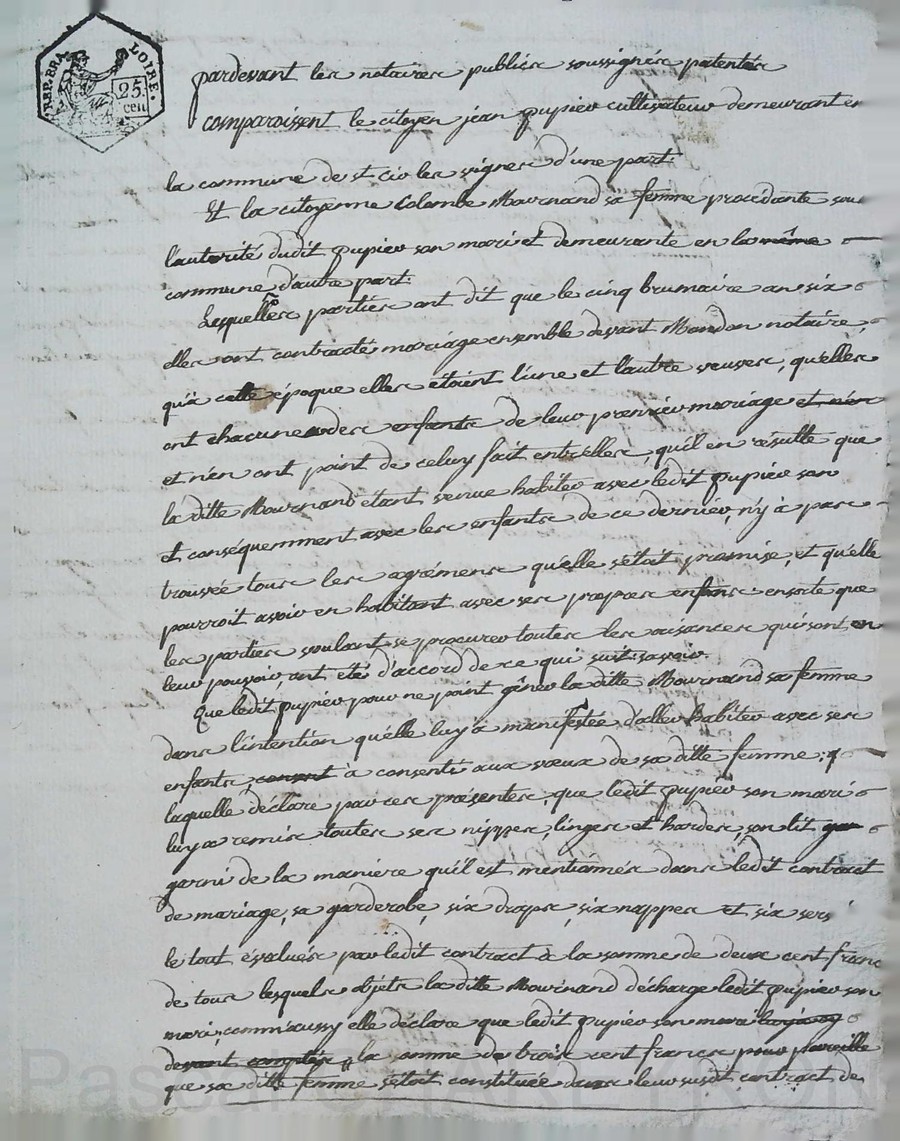 REP. FRA.
LOIRE.
25
cen
pardevant les notaires publics soussignés patentés
comparoissent le citoyen jean pupier cultivateur demeurant en
la commune de st cir les vignes d'une part
Et la citoyenne Colombe Mournand sa femme procédante sous
l'autorité dudit pupier son mari et demeurante en la même
commune d'autre part.
Lesquelles parties ont dit que le cinq brumaire an six
elles ont contracté mariage ensemble devant Mondon notaire,
qu'à cette époque elles étoient l'une et l'autre veuves, qu'elles
ont chacune des enfants de leur premier mariage et n'en
et n'en ont point de celuy fait entr'elles, qu'il en résulte que
la ditte Mournand étant venue habiter avec ledit pupier son
et conséquemment avec les enfants de ce dernier, n'y à pas
trouvée tous les agrémens qu'elle s'étoit promise, et qu'elle
pourroit avoir en habitant avec ses propres enfans ensorte que
les parties voulant se procurer toutes les aisances qui sont en
leur pouvoir, ont été d'accord de ce qui suit savoir
Que ledit pupier pour ne point gêner la ditte Mournand sa femme
dans l'intention qu'elle luy à manifestée d'aller habiter avec ses
enfants, consent à consenti aux vœux de sa ditte femme;
laquelle déclare par ces présentes, que ledit pupier son mari
luy a remis toutes ses nippes, linges et hardes, son lit gar
garni de la maniere qu'il est mentionnés dans ledit contract
de mariage, sa garderobe, six draps, six nappes et six ser
le tout évalués par ledit contract à la somme de deux cent franc
de tous lesquels objets la ditte Mournand décharge ledit pupier son
mari; comm'aussy elle déclare que ledit pupier son mari luy à cy
devant comptés, la somme de trois cent francs pour pareille
que sa ditte femme s'étoit constituée dans leur susdit contract de
Pascal CHARLEYRON